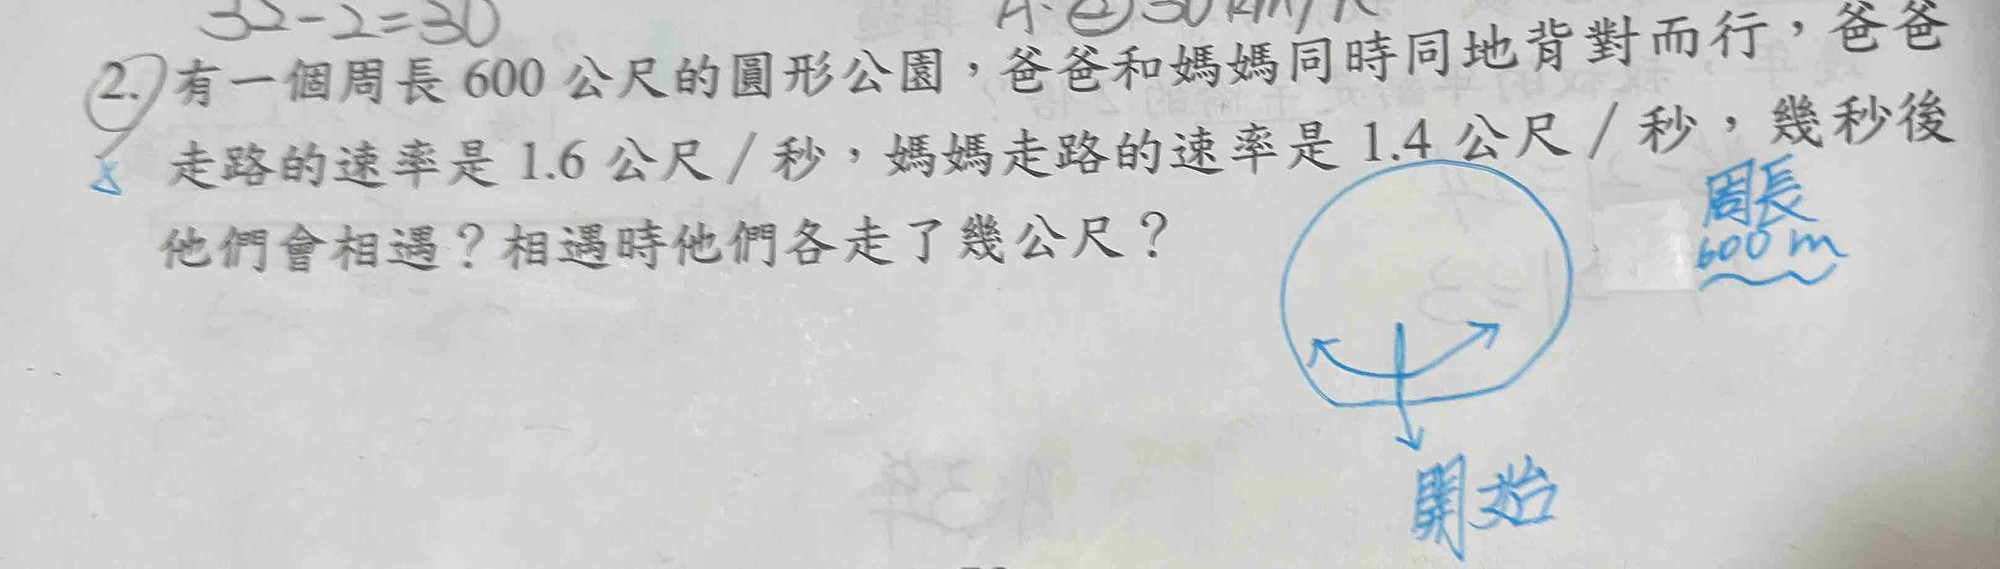 32-2=30
2. 有一個周長 600 公尺的圓形公園，爸爸和媽媽同時同地背對而行，爸爸
走路的速率是 1.6 公尺／秒，媽媽走路的速率是 1.4 公尺／秒，幾秒後
他們會相遇？相遇時他們各走了幾公尺？
周長
600 m
開始